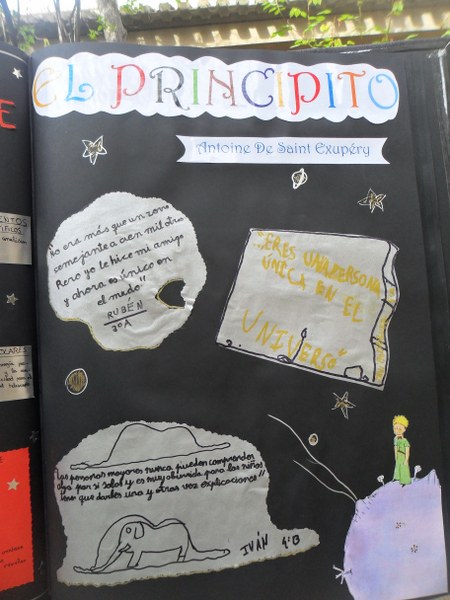 EL PRINCIPITO
Antoine De Saint Exupéry
"No era más que un zorro
semejante a cien mil otros
Pero yo le hice mi amigo
y ahora es único en
el mundo"
RUBÉN
2ºA
"ERES UNA PERSONA
ÚNICA EN EL
UNIVERSO"
Las personas mayores nunca pueden comprender
algo por sí solas y es muy aburrido para los niños
tener que darles una y otras vez explicaciones"
IVÁN 4ºB